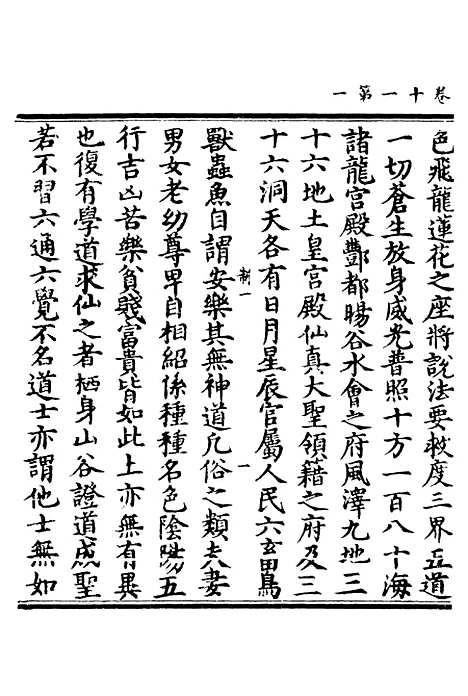 卷十一第一
色飛龍蓮花之座將說法要救度三界五道
一切蒼生放身威光普照十方一百八十海
諸龍宮殿酆都暘谷水會之府風澤九地三
十六地土皇宮殿仙真大聖領籍之府及三
十六洞天各有日月星辰官屬人民六玄田鳥
制一 一
獸蟲魚自謂安樂其無神道凡俗之類夫妻
男女老幼尊卑自相紹係種種名色陰陽五
行吉凶苦樂貧賤富貴皆如此上亦無有異
也復有學道求仙之者栖身山谷證道成聖
若不習六通六覺不名道士亦謂他士無如